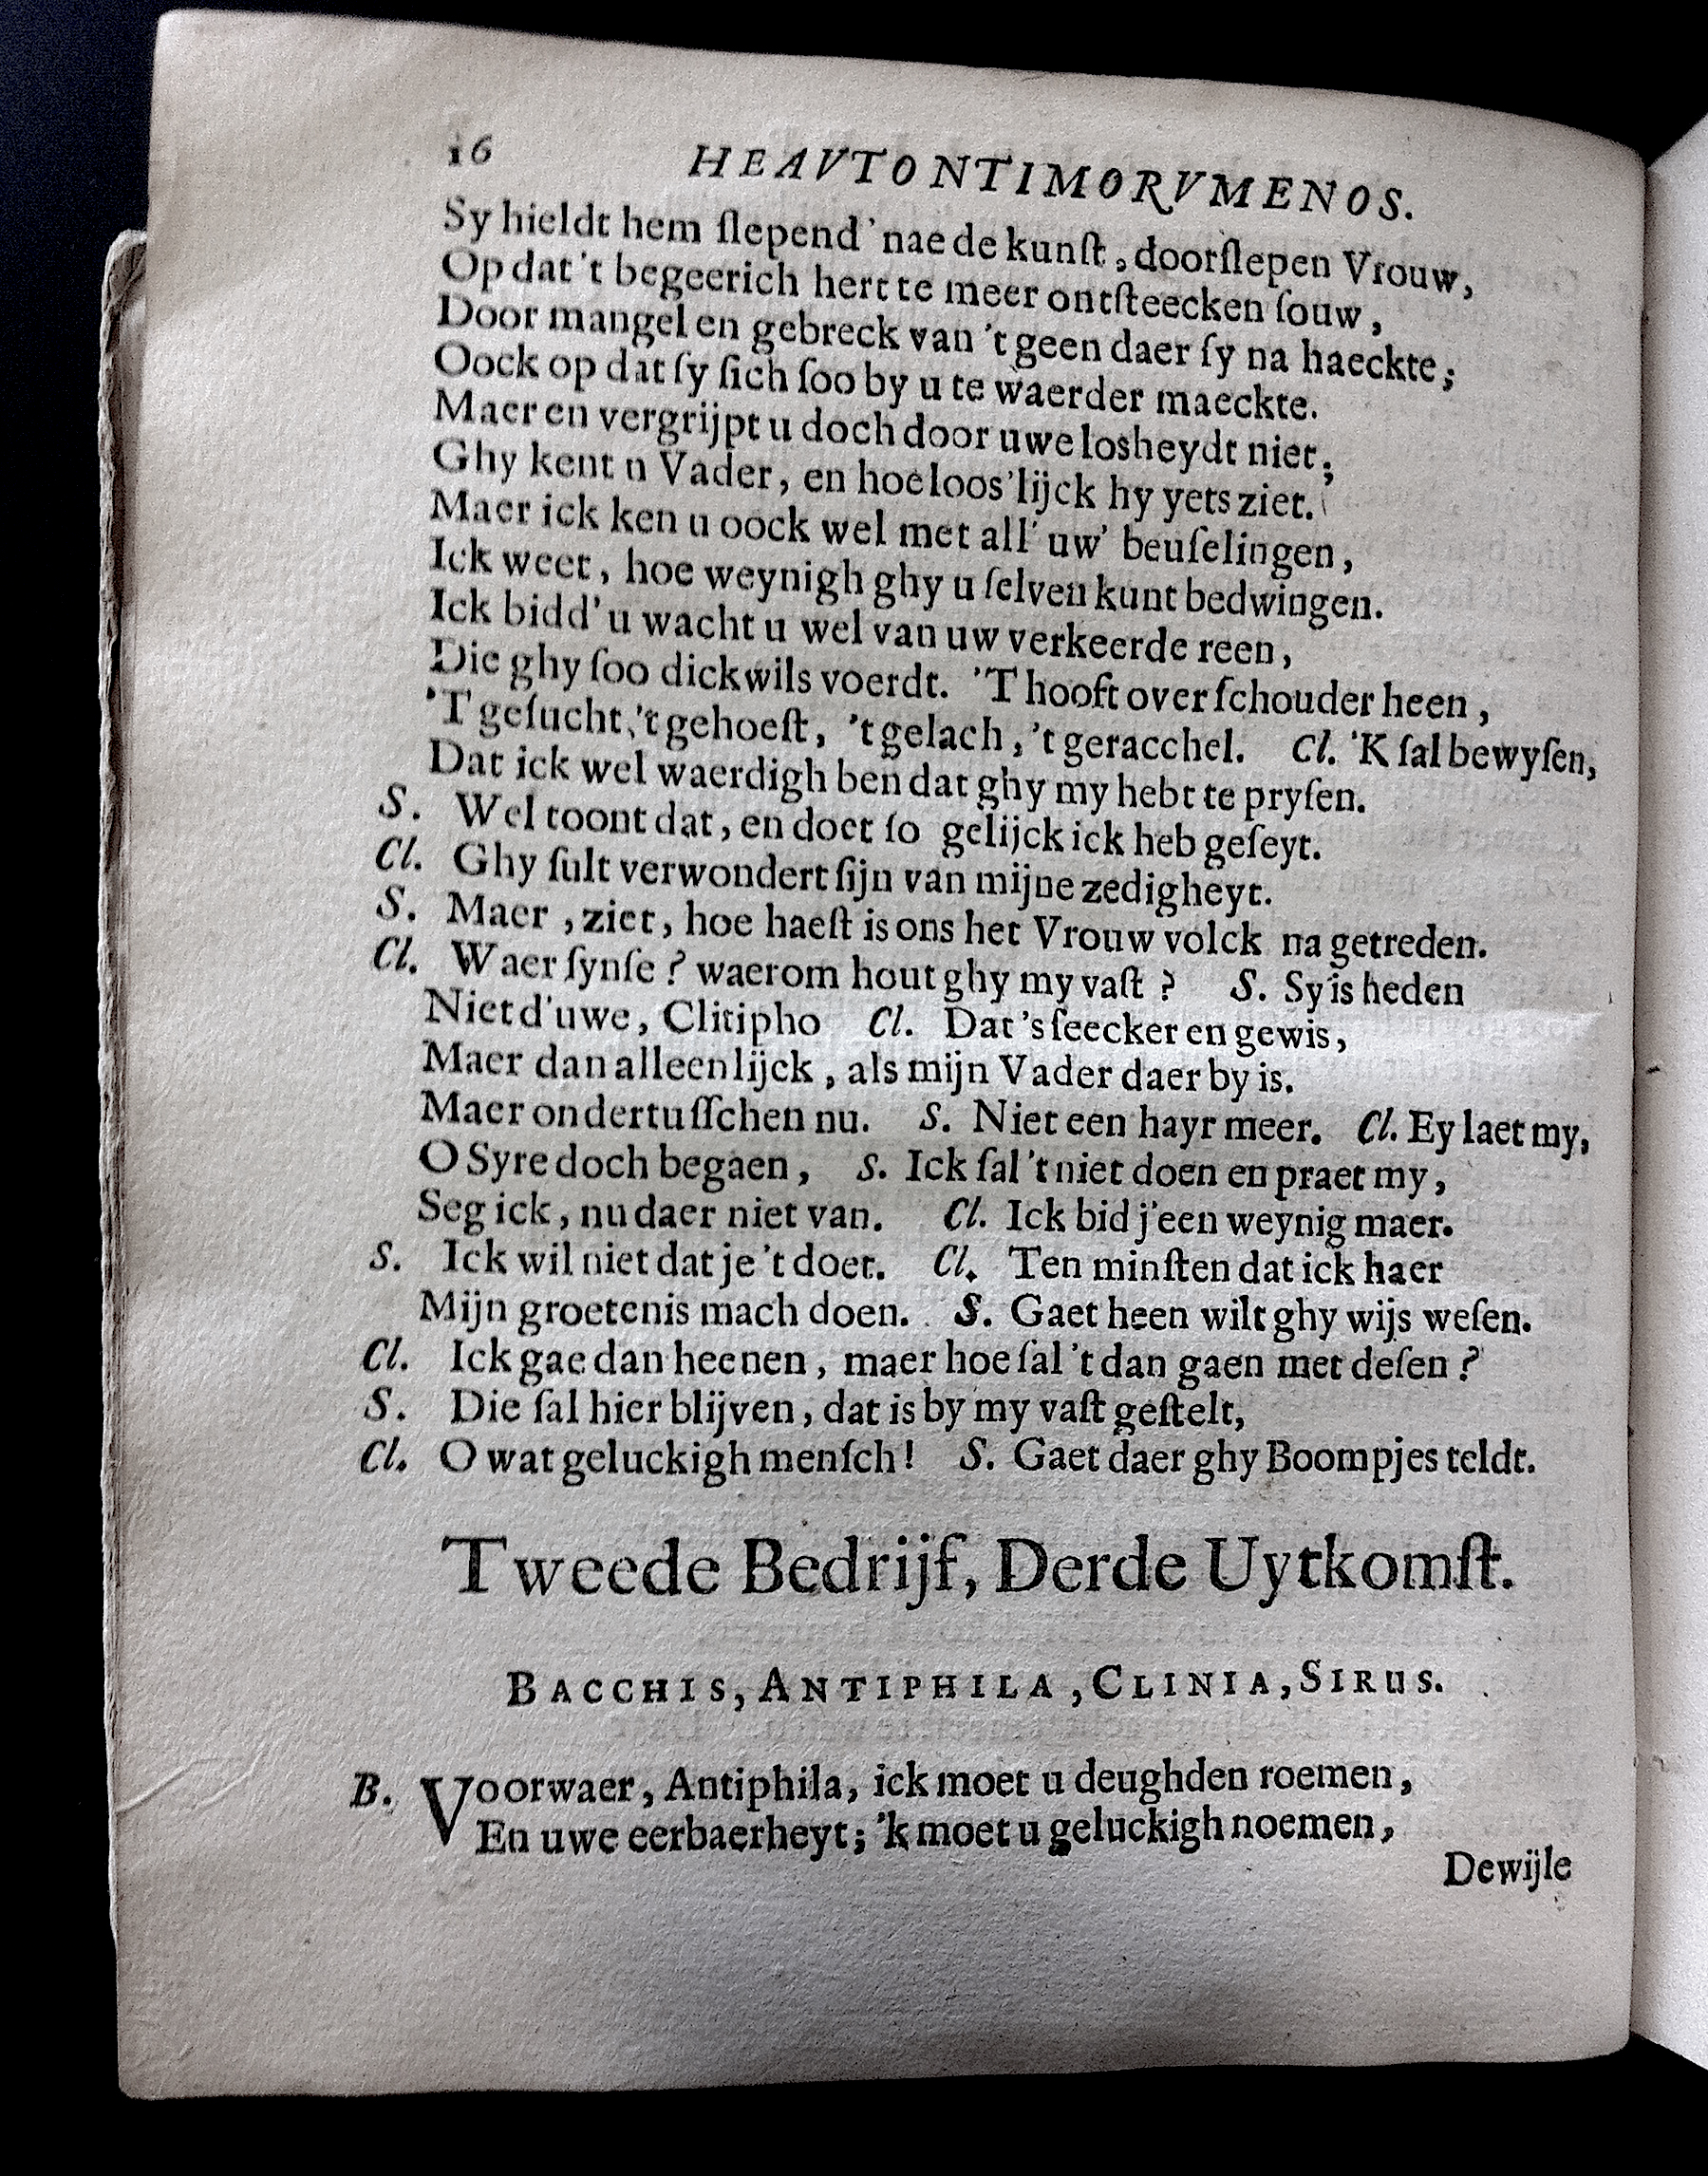 16 HEAVTONTIMORVMENOS.
Sy hieldt hem ſlepend' nae de kunſt, doorſlepen Vrouw,
Op dat 't begeerich hert te meer ontſteecken ſouw,
Door mangel en gebreck van 't geen daer ſy na haeckte;
Oock op dat ſy ſich ſoo by u te waerder maeckte.
Maer en vergrijpt u doch door uwe losheydt niet;
Ghy kent u Vader, en hoe loos'lijck hy yets ziet.
Maer ick ken u oock wel met all' uw' beuſelingen,
Ick weet, hoe weynigh ghy u ſelven kunt bedwingen.
Ick bidd' u wacht u wel van uw verkeerde reen,
Die ghy ſoo dickwils voerdt. 'T hooft over ſchouder heen,
'T geſucht, 't gehoeſt, 't gelach, 't geracchel. Cl. 'K ſal bewyſen,
Dat ick wel waerdigh ben dat ghy my hebt te pryſen.
S. Wel toont dat, en doet ſo gelijck ick heb geſeyt.
Cl. Ghy ſult verwondert ſijn van mijne zedigheyt.
S. Maer, ziet, hoe haeſt is ons het Vrouw volck na getreden.
Cl. Waer ſynſe? waerom hout ghy my vaſt? S. Sy is heden
Niet d'uwe, Clitipho Cl. Dat 's ſeecker en gewis,
Maer dan alleenlijck, als mijn Vader daer by is.
Maer ondertuſſchen nu. S. Niet een hayr meer. Cl. Ey laet my,
O Syre doch begaen, S. Ick ſal 't niet doen en praet my,
Seg ick, nu daer niet van. Cl. Ick bid j'een weynig maer.
S. Ick wil niet dat je 't doet. Cl. Ten minſten dat ick haer
Mijn groetenis mach doen. S. Gaet heen wilt ghy wijs weſen.
Cl. Ick gae dan heenen, maer hoe ſal 't dan gaen met deſen?
S. Die ſal hier blijven, dat is by my vaſt geſtelt,
Cl. O wat geluckigh menſch! S. Gaet daer ghy Boompjes teldt.
Tweede Bedrijf, Derde Uytkomſt.
BACCHIS, ANTIPHILA, CLINIA, SIRUS.
B. Voorwaer, Antiphila, ick moet u deughden roemen,
En uwe eerbaerheyt; 'k moet u geluckigh noemen,
Dewijle